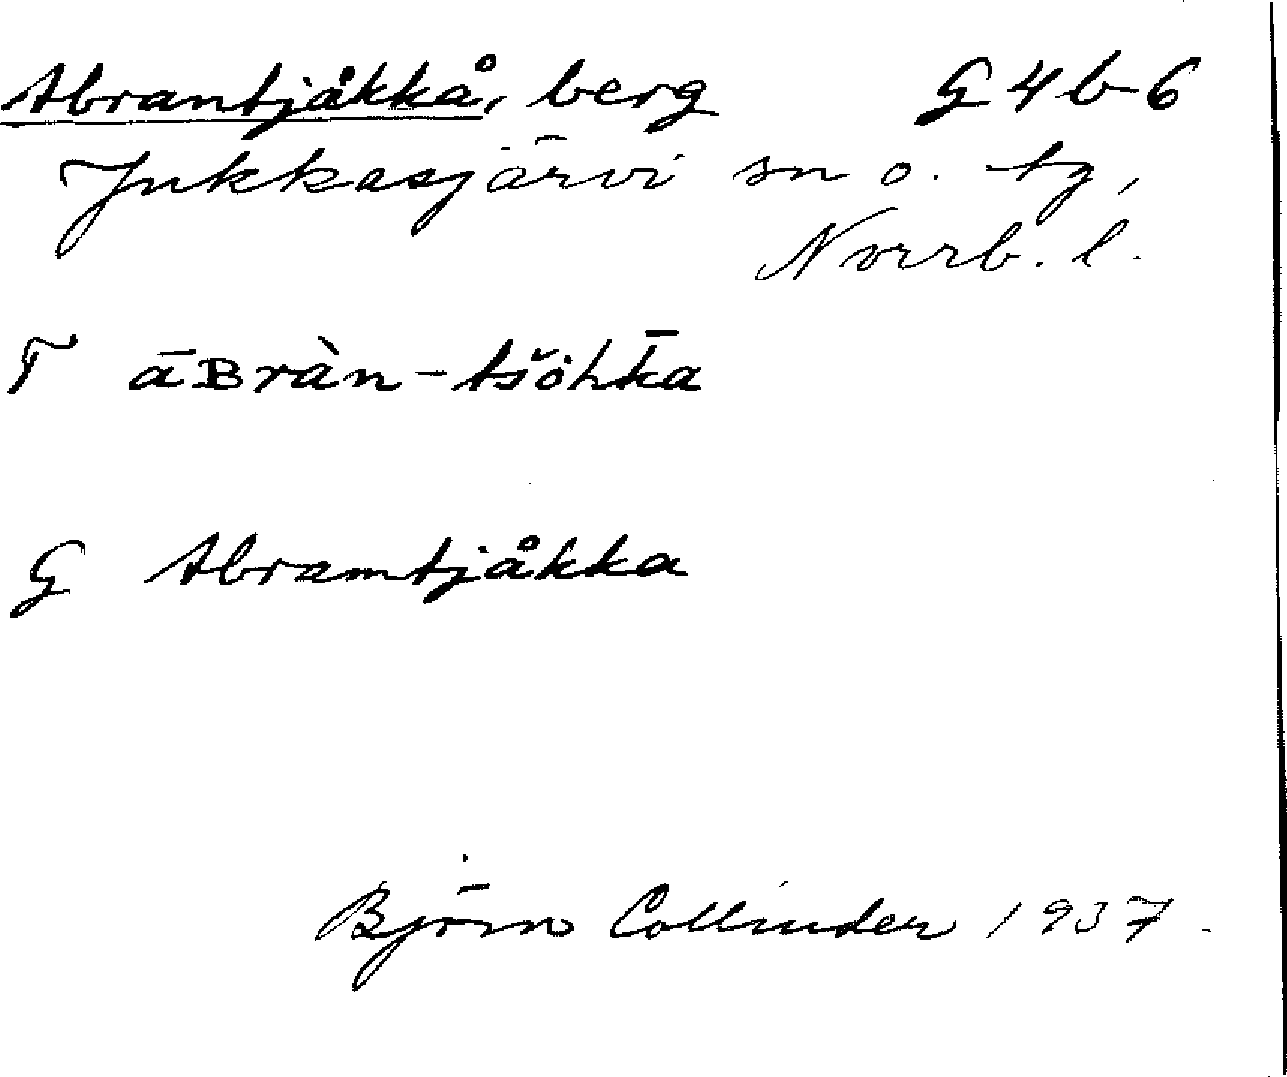 Abrantjåkkå, berg G4b6
Jukkasjärvi sn o. tg,
Norrb. l.
T āʙràn-tšòhk̄a
G Abramtjåkka
Björn Collinder 1937.